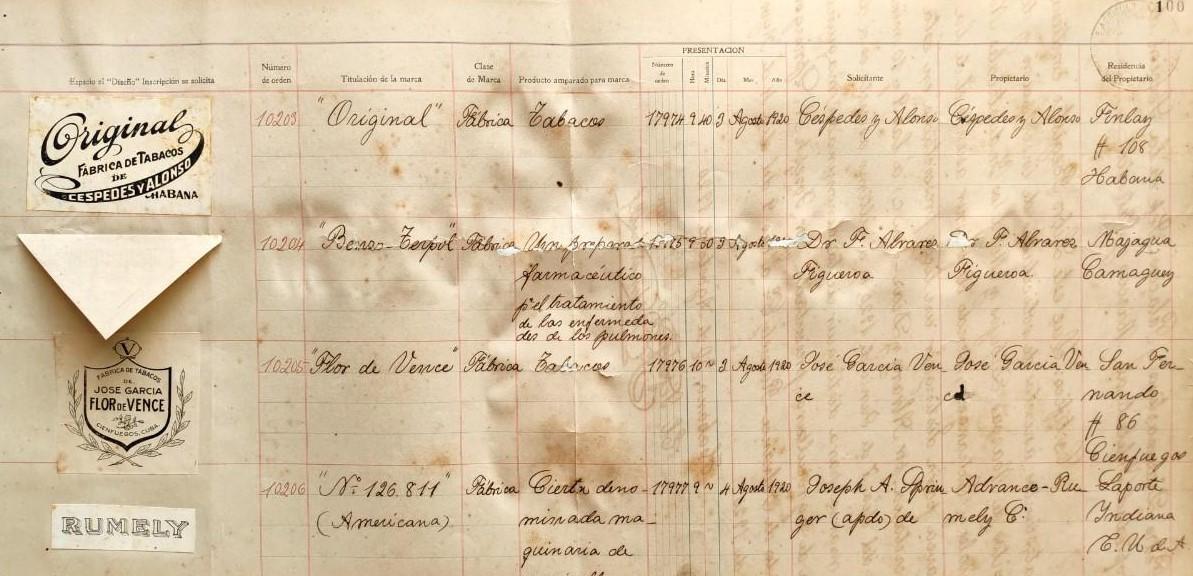 100
PRESENTACION
Espacio al "Diseño" Inscripción se solicita
Número de orden
Titulación de la marca
Clase de Marca
Producto amparado para marca
Número de orden
Hora
Minutos
Día
Mes
Año
Solicitante
Propietario
Residencia del Propietario
Original
FÁBRICA DE TABACOS
DE
CESPEDES Y ALONSO
HABANA
10203 "Original" Fábrica Tabacos 17974 9 40 3 Agosto 1920 Céspedes y Alonso Céspedes y Alonso Finlay
# 108
Habana
10204 Fábrica Un preparat 9 50 3 Agosto Dr F. Alvarez F. Alvarez Majagua
farmacéutico Figueroa Figueroa Camaguey
p'el tratamiento
de las enfermeda
des de los pulmones.
V
FABRICA DE TABACOS
DE
JOSE GARCIA
FLOR DE VENCE
CIENFUEGOS, CUBA.
10205 "Flor de Vence" Fábrica Tabacos 17976 10 " 3 Agosto 1920 José García Ven José García Ven San Fer-
ce ce nando
# 86
Cienfuegos
10206 "Nº 126.811" Fábrica Cierta deno- 17977 9 " 4 Agosto 1920 Joseph A. Advance-Ru Laporte
(Americana) minada ma- ger (apdo) de mely Cº Indiana
quinaria de E. U de A
RUMELY